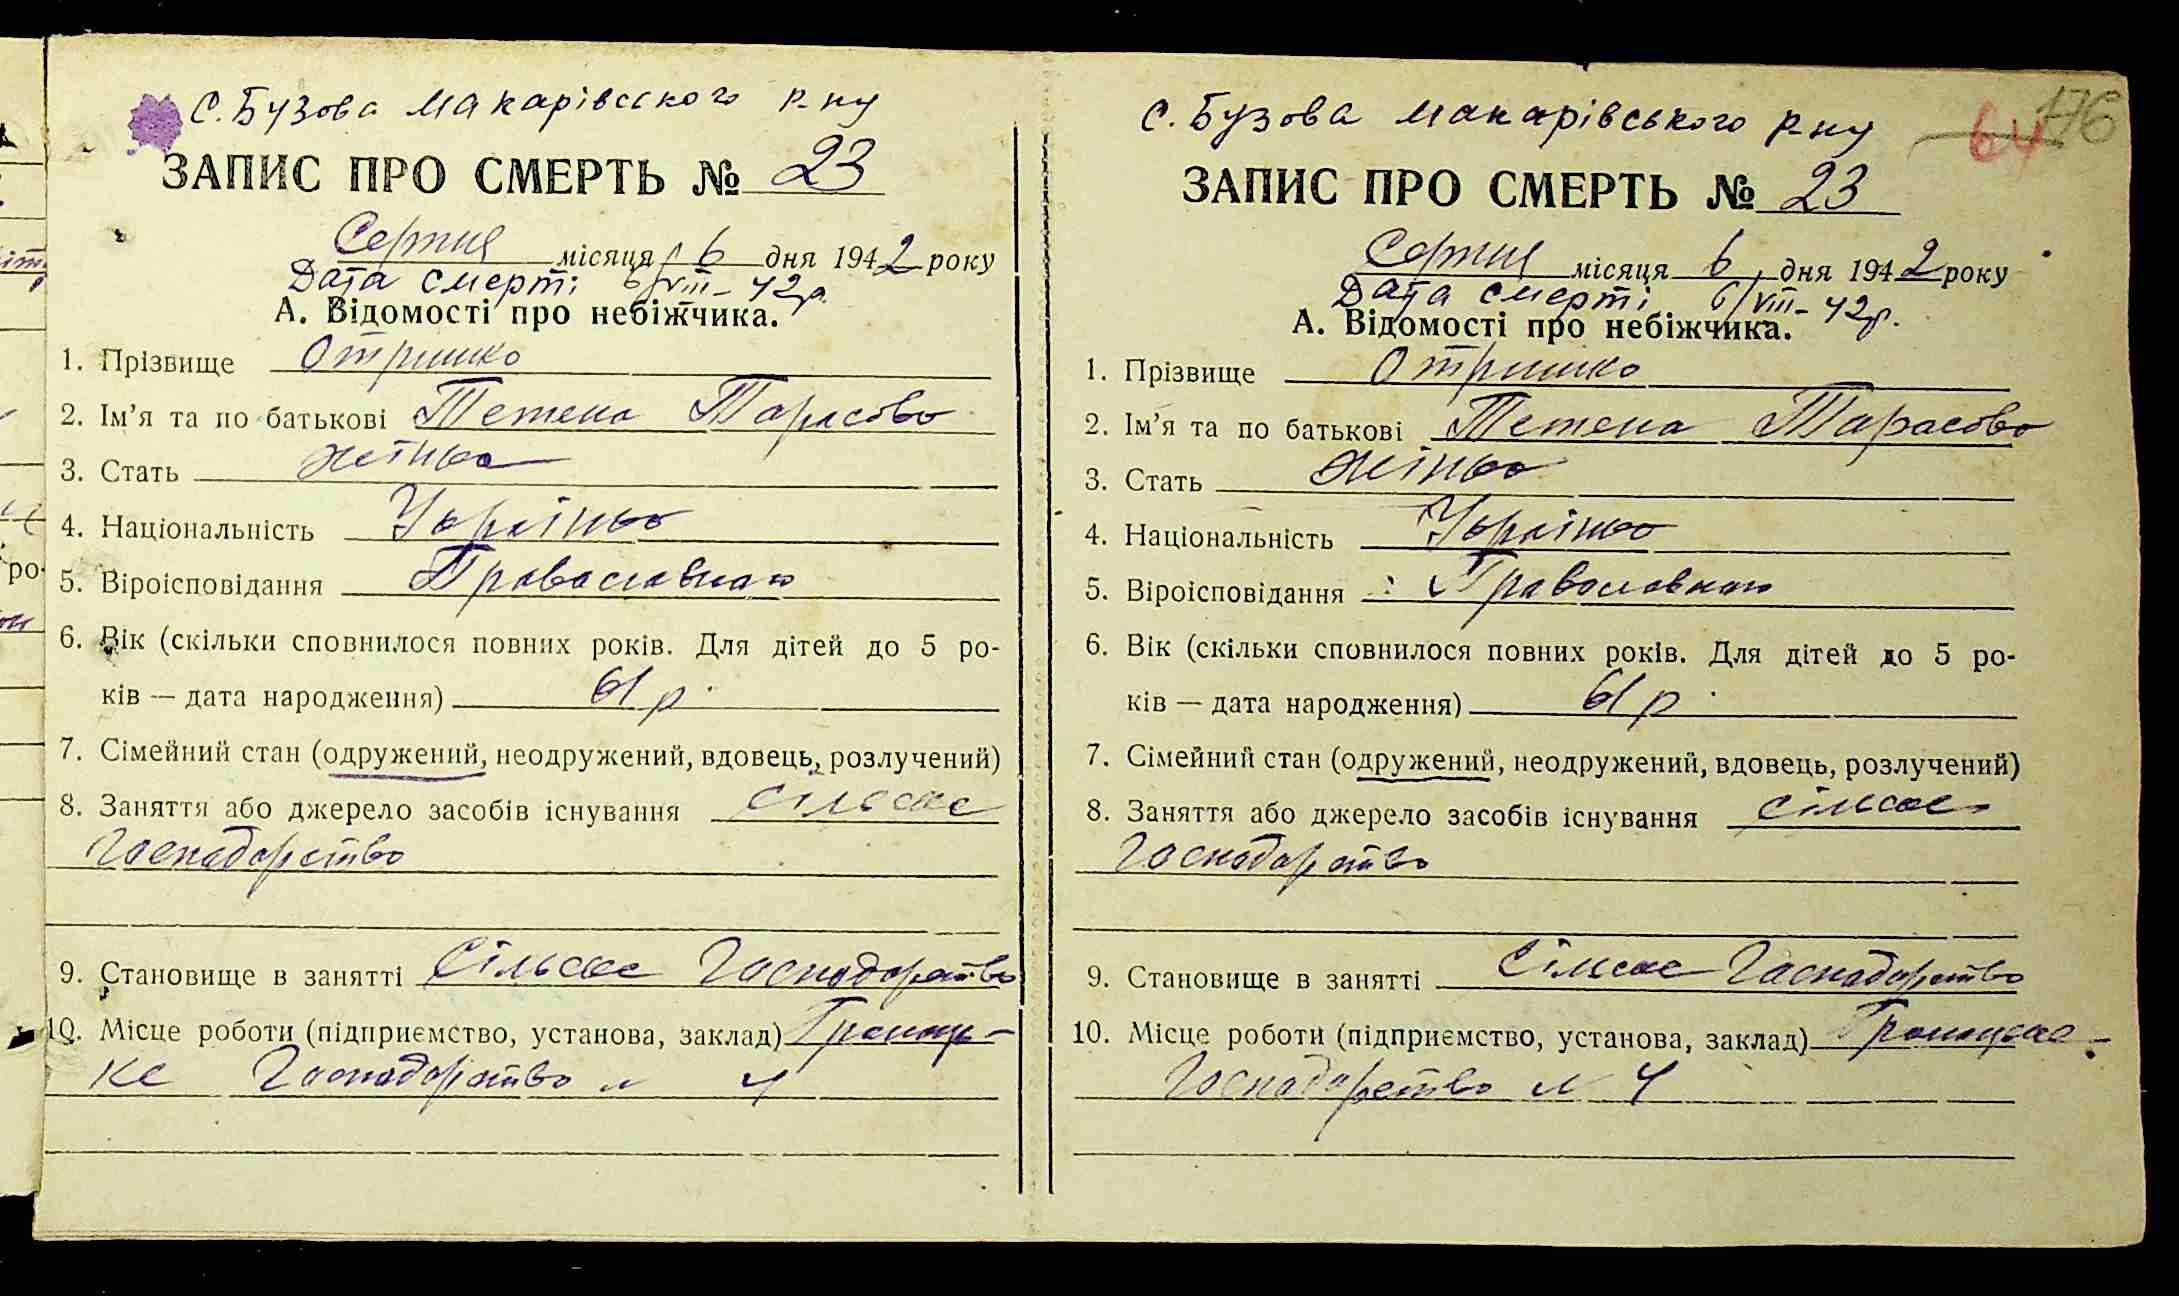 с. Бузова Макарівського р-ну
ЗАПИС ПРО СМЕРТЬ № 23
Серпня місяця 6 дня 1942 року
Дата смерті 6/VIII-42р.
А. Відомості про небіжчика.
1. Прізвище Отришко
2. Ім’я та по батькові Тетена Тарасово
3. Стать жінка
4. Національність Українка
5. Віроісповідання Православною
6. Вік (скільки сповнилося повних років. Для дітей до 5 ро-
ків — дата народження) 61 р.
7. Сімейний стан (одружений, неодружений, вдовець, розлучений)
8. Заняття або джерело засобів існування сільське
господарство
9. Становище в занятті Сільське господарство
10. Місце роботи (підприємство, установа, заклад) Громадсь-
ке Господарство № 4
с. Бузова Макарівського р-ну
64 176
ЗАПИС ПРО СМЕРТЬ № 23
Серпня місяця 6 дня 1942 року
Дата смерті 6/VIII-42р.
А. Відомості про небіжчика.
1. Прізвище Отришко
2. Ім’я та по батькові Тетена Тарасово
3. Стать жінка
4. Національність Українка
5. Віроісповідання Православною
6. Вік (скільки сповнилося повних років. Для дітей до 5 ро-
ків — дата народження) 61 р.
7. Сімейний стан (одружений, неодружений, вдовець, розлучений)
8. Заняття або джерело засобів існування сільське
господарство
9. Становище в занятті Сільське Господарство
10. Місце роботи (підприємство, установа, заклад) Громадське
Господарство № 4